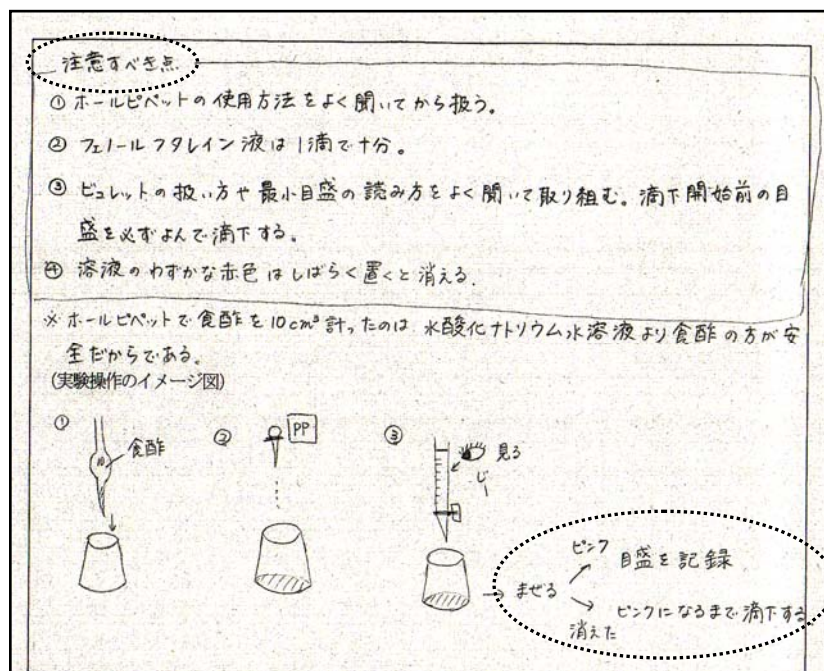 注意すべき点
① ホールピペットの使用方法をよく聞いてから扱う。
② フェノールフタレイン液は1滴で十分。
③ ビュレットの扱い方や最小目盛の読み方をよく聞いて取り組む。滴下開始前の目
盛を必ずよんで滴下する。
④ 溶液のわずかな赤色はしばらく置くと消える.
※ ホールピペットで食酢を10cm³計ったのは、水酸化ナトリウム水溶液より食酢の方が安
全だからである。
(実験操作のイメージ図)
①
10
食酢
②
PP
③
見る
じー
まぜる
ピンク
目盛を記録
ピンクになるまで滴下する
消えた